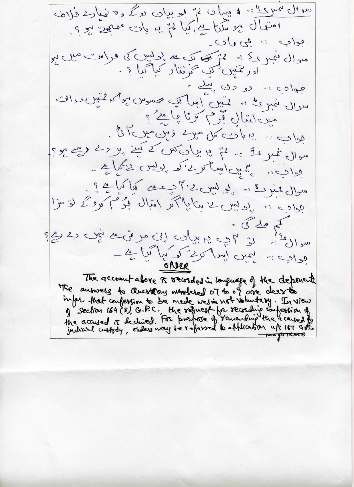 سوال نمبر ... یہ بیان تم ... دو گے وہ تمہارے خلاف
استعمال ہو سکتا ہے کیا تم ... یہ بات سمجھتے ہو؟
جواب :- جی ہاں۔
سوال نمبر ... تم کب سے پولیس کی حراست میں ہو
اور تمہیں کب گرفتار کیا گیا؟
جواب :- دو دن پہلے
سوال نمبر ... تمہیں ایسا کب محسوس ہوا کہ تمہیں عدالت
میں اقبال جرم کرنا چاہیے؟
جواب :- یہ بات کل میرے ذہن میں آئی
سوال نمبر ... تم یہ بیان کس کے کہنے پر دے رہے ہو؟
جواب :- ایسا کرنے کو پولیس نے کہا ہے۔
سوال نمبر ... پولیس نے آپ سے کیا کہا ہے؟
جواب :- پولیس نے بتایا اگر اقبال جرم کرو گے تو سزا
کم ملے گی۔
سوال ... تو آپ یہ بیان اپنی مرضی سے نہیں دے رہے؟
جواب :- نہیں ایسا کرنے کو کہا گیا ہے۔
ORDER
The account above is recorded in language of the deponent.
The answers to Questions numbered 05 to 09 are clear to
infer that confession to be made was not voluntary. In view
of section 164 (3) C.P.C. the request for recording confession of
the accused is declined. For purpose of remanding the accused to
judicial custody, orders may be referred to application u/s 167 Cr.P.C.